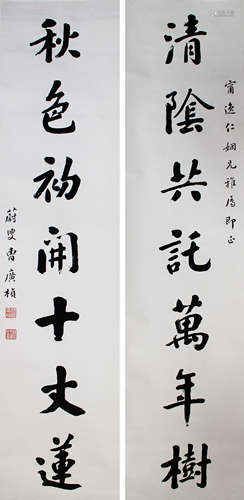 清陰共託萬年樹
甯逸仁姻兄雅屬即正
秋色初開十丈蓮
蔚叟曹廣楨